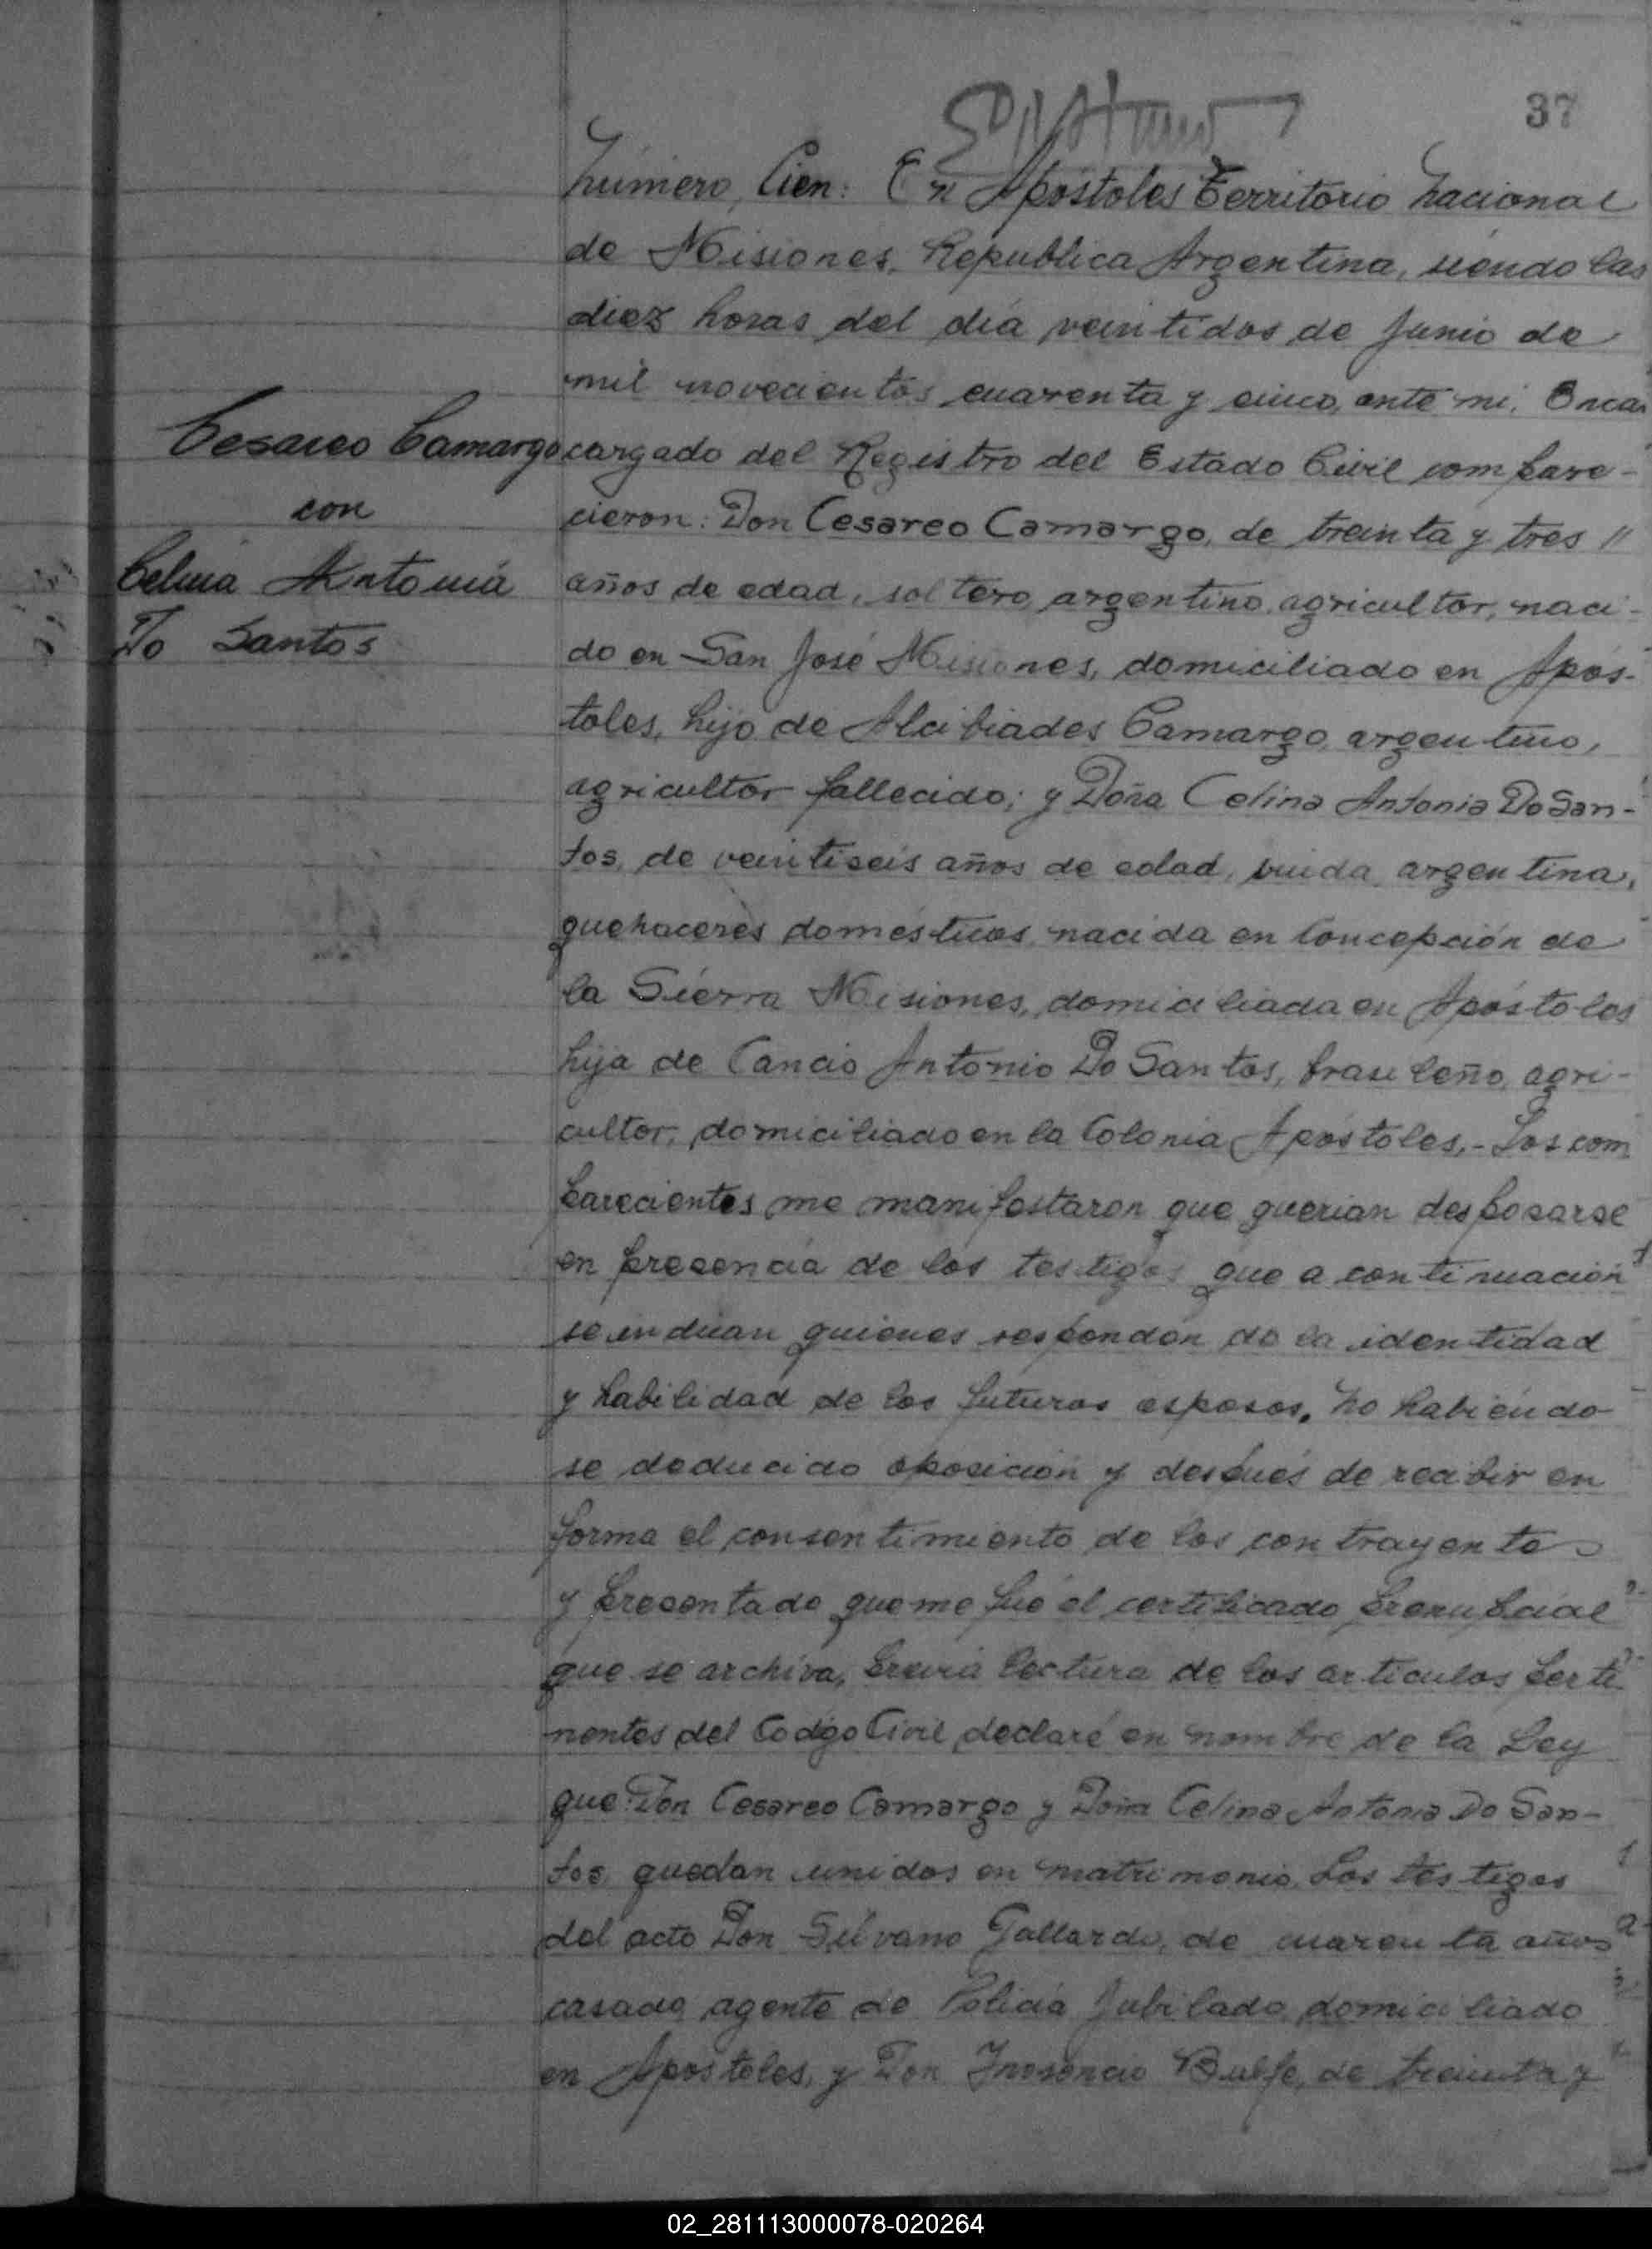 37
Número, Cien: En Apóstoles Territorio Nacional
de Misiones, Republica Argentina, siendo las
diez horas del día veintidos de Junio de
mil novecientos cuarenta y cinco, ante mi, Encar
cargado del Registro del Estado Civil compare-
cieron: Don Cesareo Camargo, de treinta y tres "
años de edad, soltero, argentino, agricultor, naci-
do en San José Misiones, domiciliado en Após-
toles, hijo de Alcibiades Camargo, argentino,
agricultor fallecido; y Doña Celina Antonia Do San-
tos, de veintiseis años de edad, viuda, argentina,
quehaceres domésticos, nacida en Concepción de
la Siérra Misiones, domiciliada en Apóstoles
hija de Cancio Antonio Do Santos, brasileño, agri-
cultor, domiciliado en la Colonia Apóstoles,- Los com
parecientes me manifestaron que querian desposarse
en presencia de los testigos que a continuación
se indican quienes responden de la identidad
y habilidad de los futuros esposos. No habiéndo-
se deducido oposición y después de recibir en
forma el consentimiento de los contrayente
y presentado que me fué el certificado prenupcial
que se archiva, previa lectura de los artículos perti
nentes del Codigo Civil declaré en nombre de la Ley
que: Don Cesareo Camargo y Doña Celina Antonia Do San-
tos, quedan unidos en matrimonio. Los testigos
del acto Don Silvano Gallardo, de cuarenta años
casado, agente de Policía Jubilado, domiciliado
en Apóstoles, y Don Inosencio de treinta y
Cesareo Camargo
con
Celina Antonia
Do Santos
02_281113000078-020264